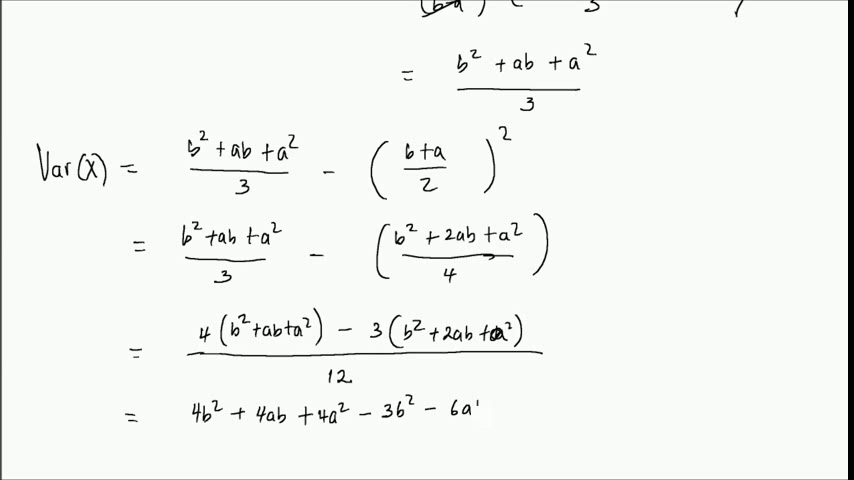 = (b² + ab + a²)/3
Var(X) = (b² + ab + a²)/3 - ((b+a)/2)²
= (b² + ab + a²)/3 - ((b² + 2ab + a²)/4)
= (4(b² + ab + a²) - 3(b² + 2ab + a²))/12
= 4b² + 4ab + 4a² - 3b² - 6a